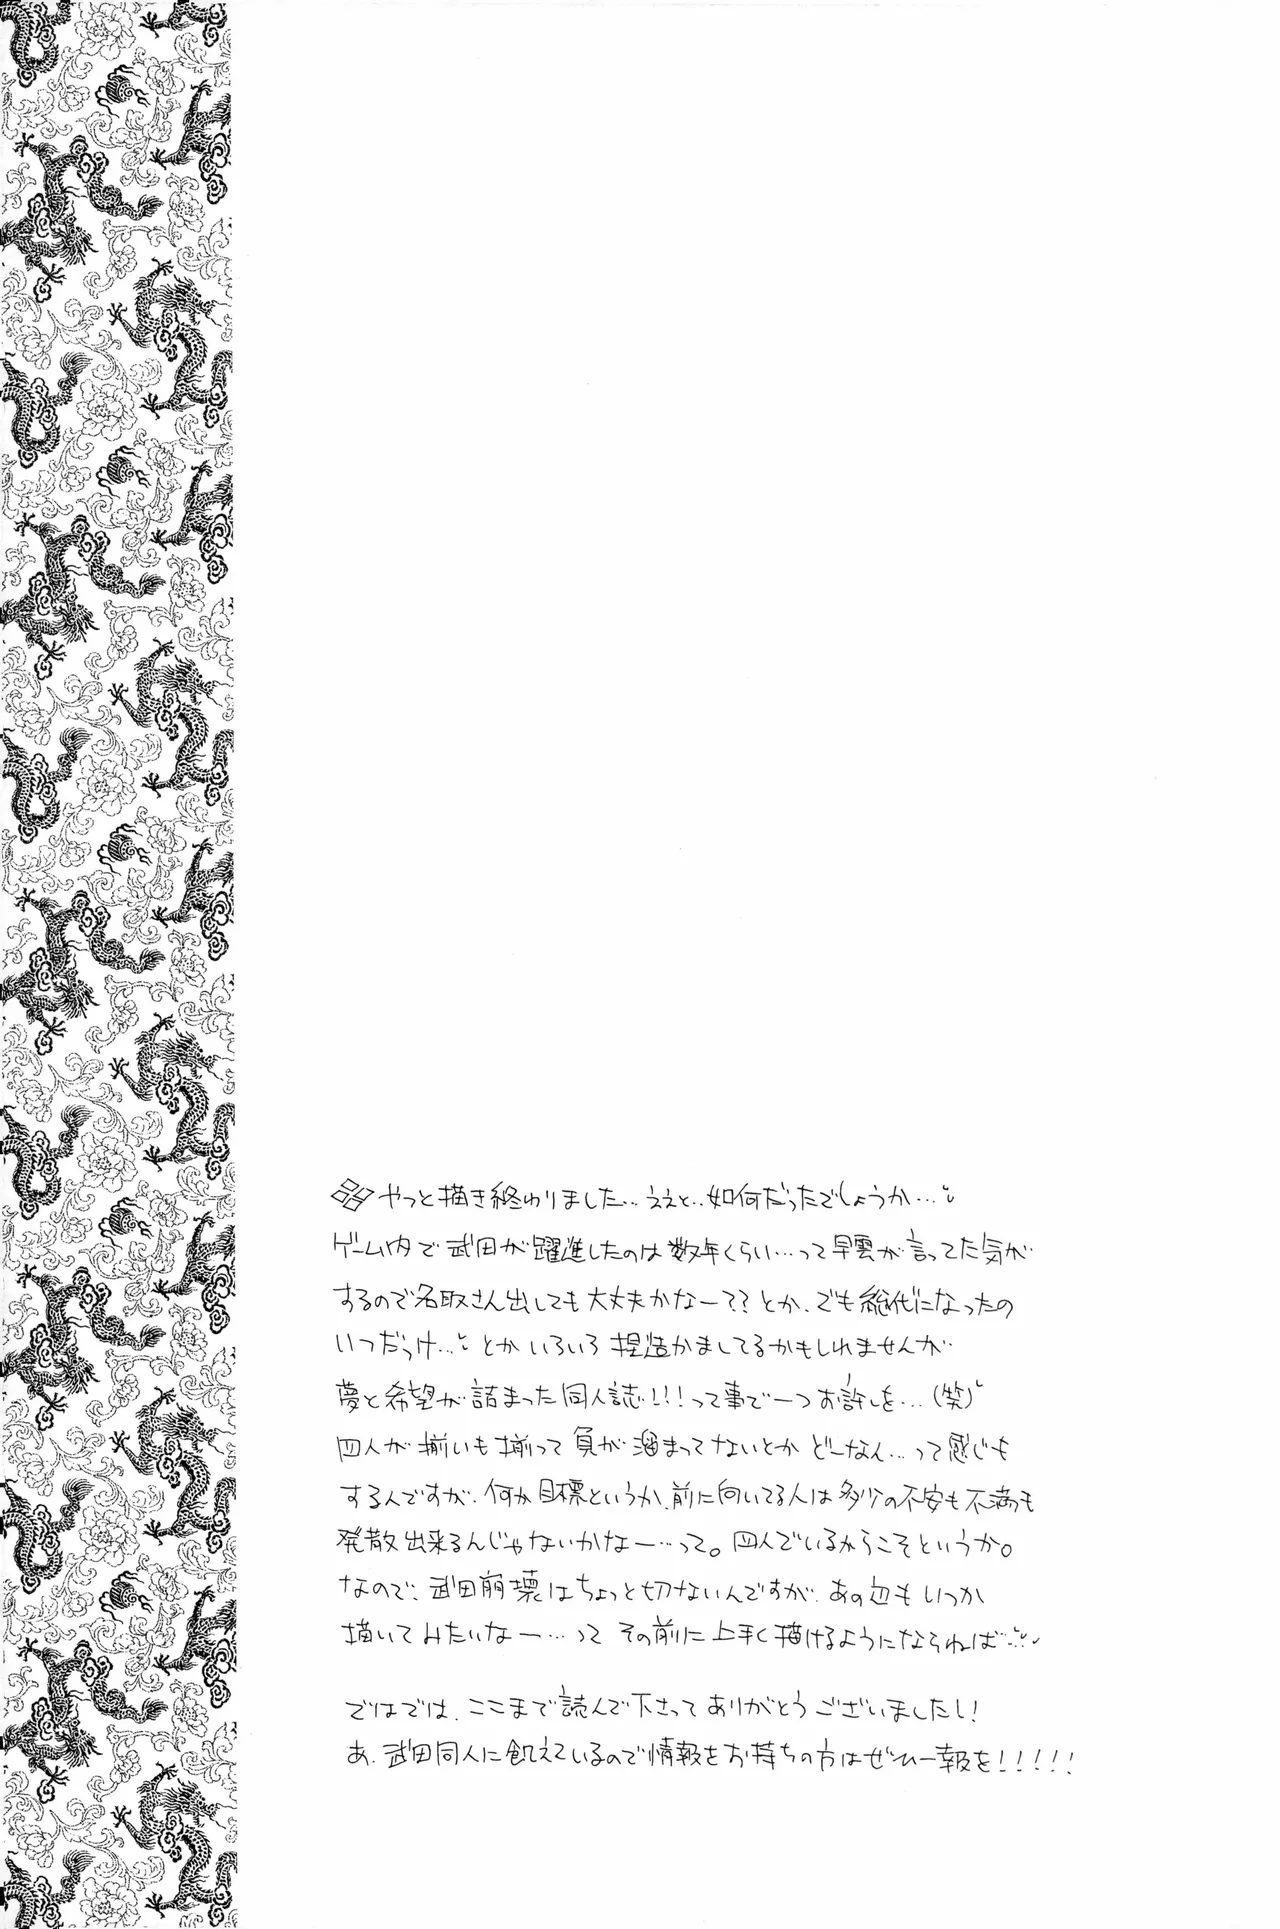 やっと描き終わりました… ええと‥如何だったでしょうか…
ゲーム内で武田が躍進したのは数年くらい…って早雲が言ってた気が
するので名取さん出しても大丈夫かなー??とか、でも総代になったの
いつだっけ…とかいろいろ捏造かましてるかもしれませんが
夢と希望が詰まった同人誌!!!って事で一つお許しを…(笑)
四人が揃いも揃って負が溜まってないとかどーなん…って感じも
するんですが、何か目標というか、前に向いてる人は多少の不安も不満も
発散出来るんじゃないかなー…って。四人でいるからこそというか。
なので、武田崩壊はちょっと切ないんですが、あの辺もいつか
描いてみたいなー…って その前に上手く描けるようにならねば…
ではでは、ここまで読んで下さってありがとうございましたし!
あ、武田同人に飢えているので情報をお持ちの方はぜひ一報を!!!!!